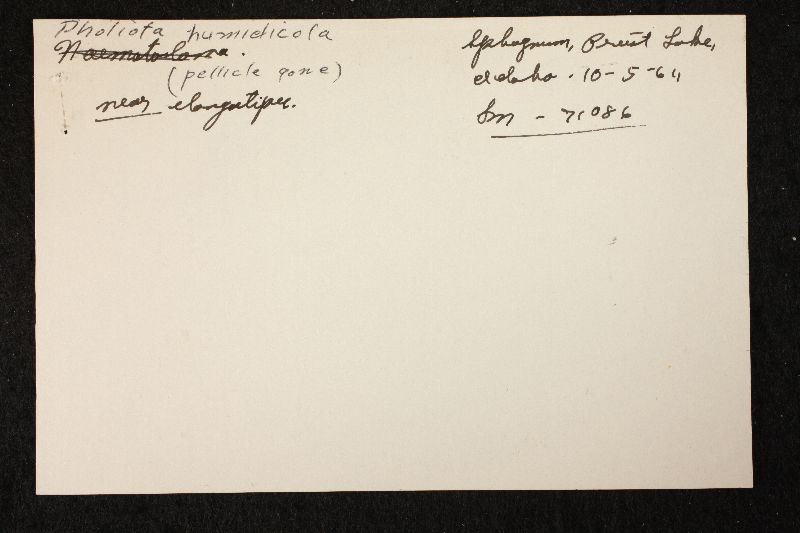 Pholiota humidicola
Naematoloma.
(pellicle gone)
near elongatipes.
Sphagnum, Priest Lake,
Idaho. 10-5-64
Sm - 71086